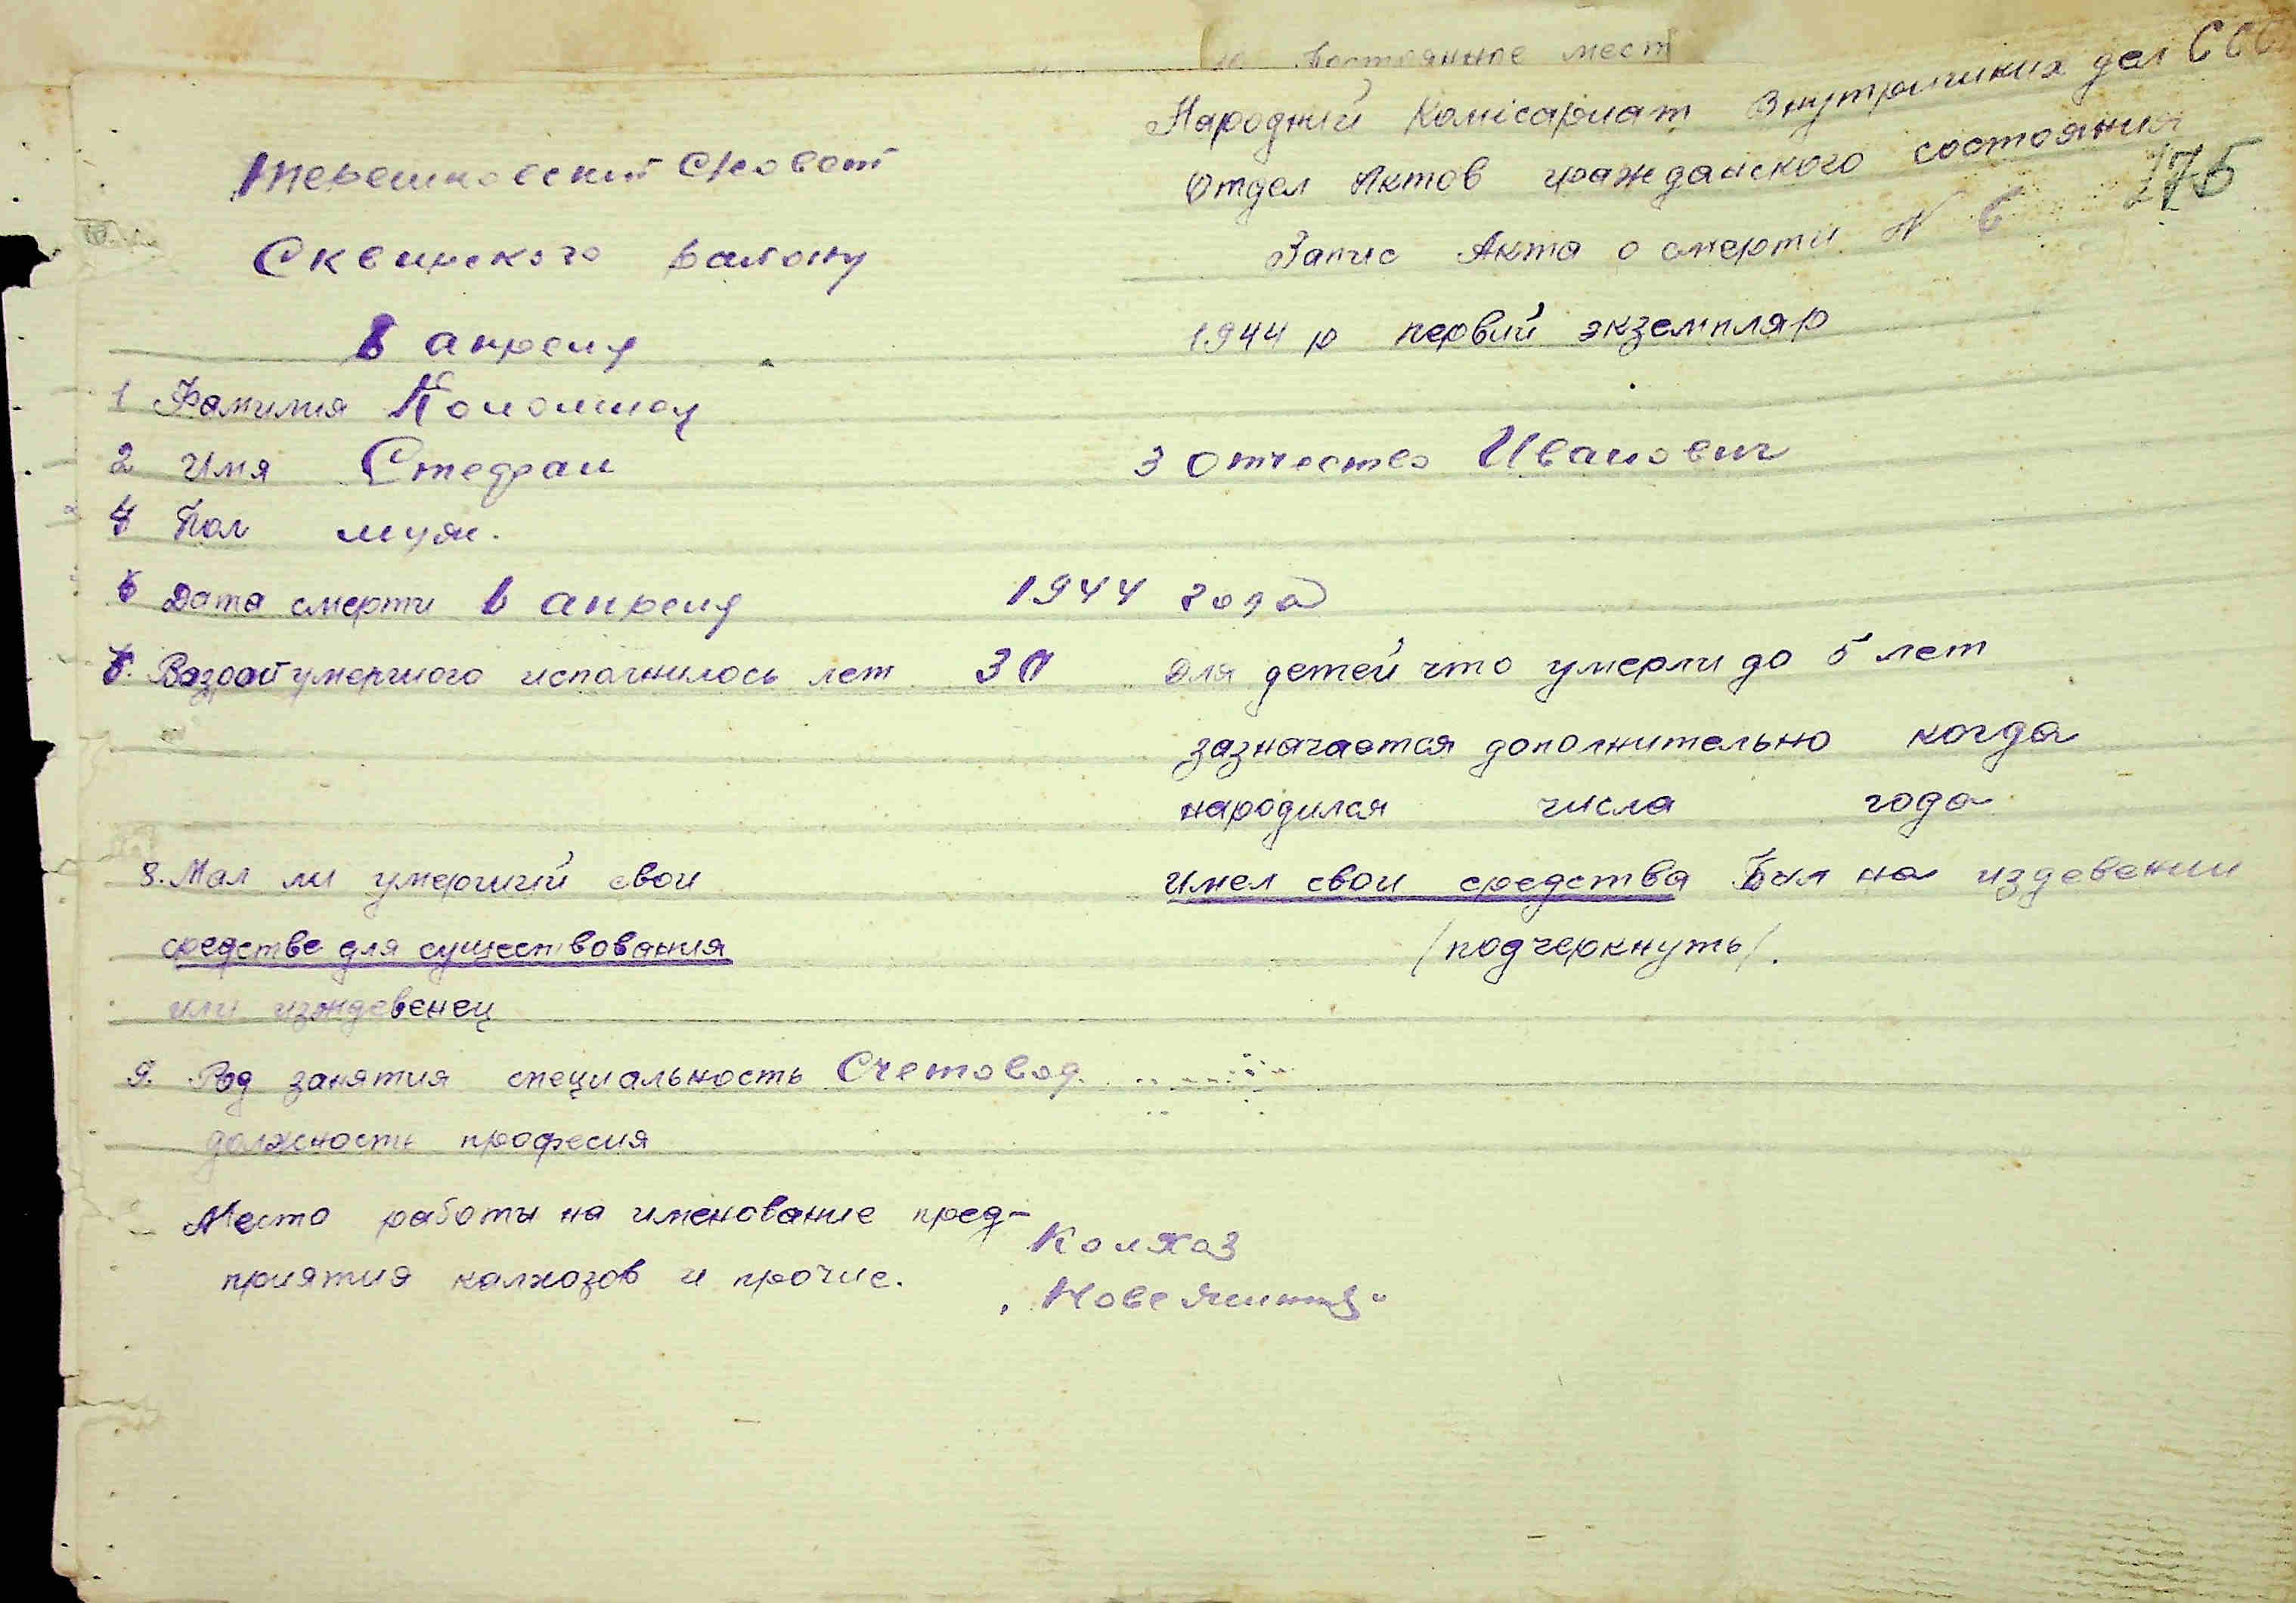 Постоянное мест
Народний Комісариат Внутришних дел ССС
Отдел Актов гражданского состояния
175
Запис Акта о смерти N 6
1944 р первий экземпляр
Терешковский
Сквирского району
апреля
1 Фамилия Коломиец
2 Имя Стефан
3 Отчество Иванович
4 Пол муж.
Дата смерти апреля 1944 года
умершого исполнилось лет 30
Для детей что умерли до 5 лет
зазначается дополнительно когда
народился числа года
8. Мал ли умерший свои
средстве для существования
или изждевенец
имел свои средства Бил на издевении
/подчеркнуть/.
9. Род занятия специальность Счетовод
должность професия
Место работы на именование пред-
приятия колхозов и прочие.
Колхоз
"Нове Життя"